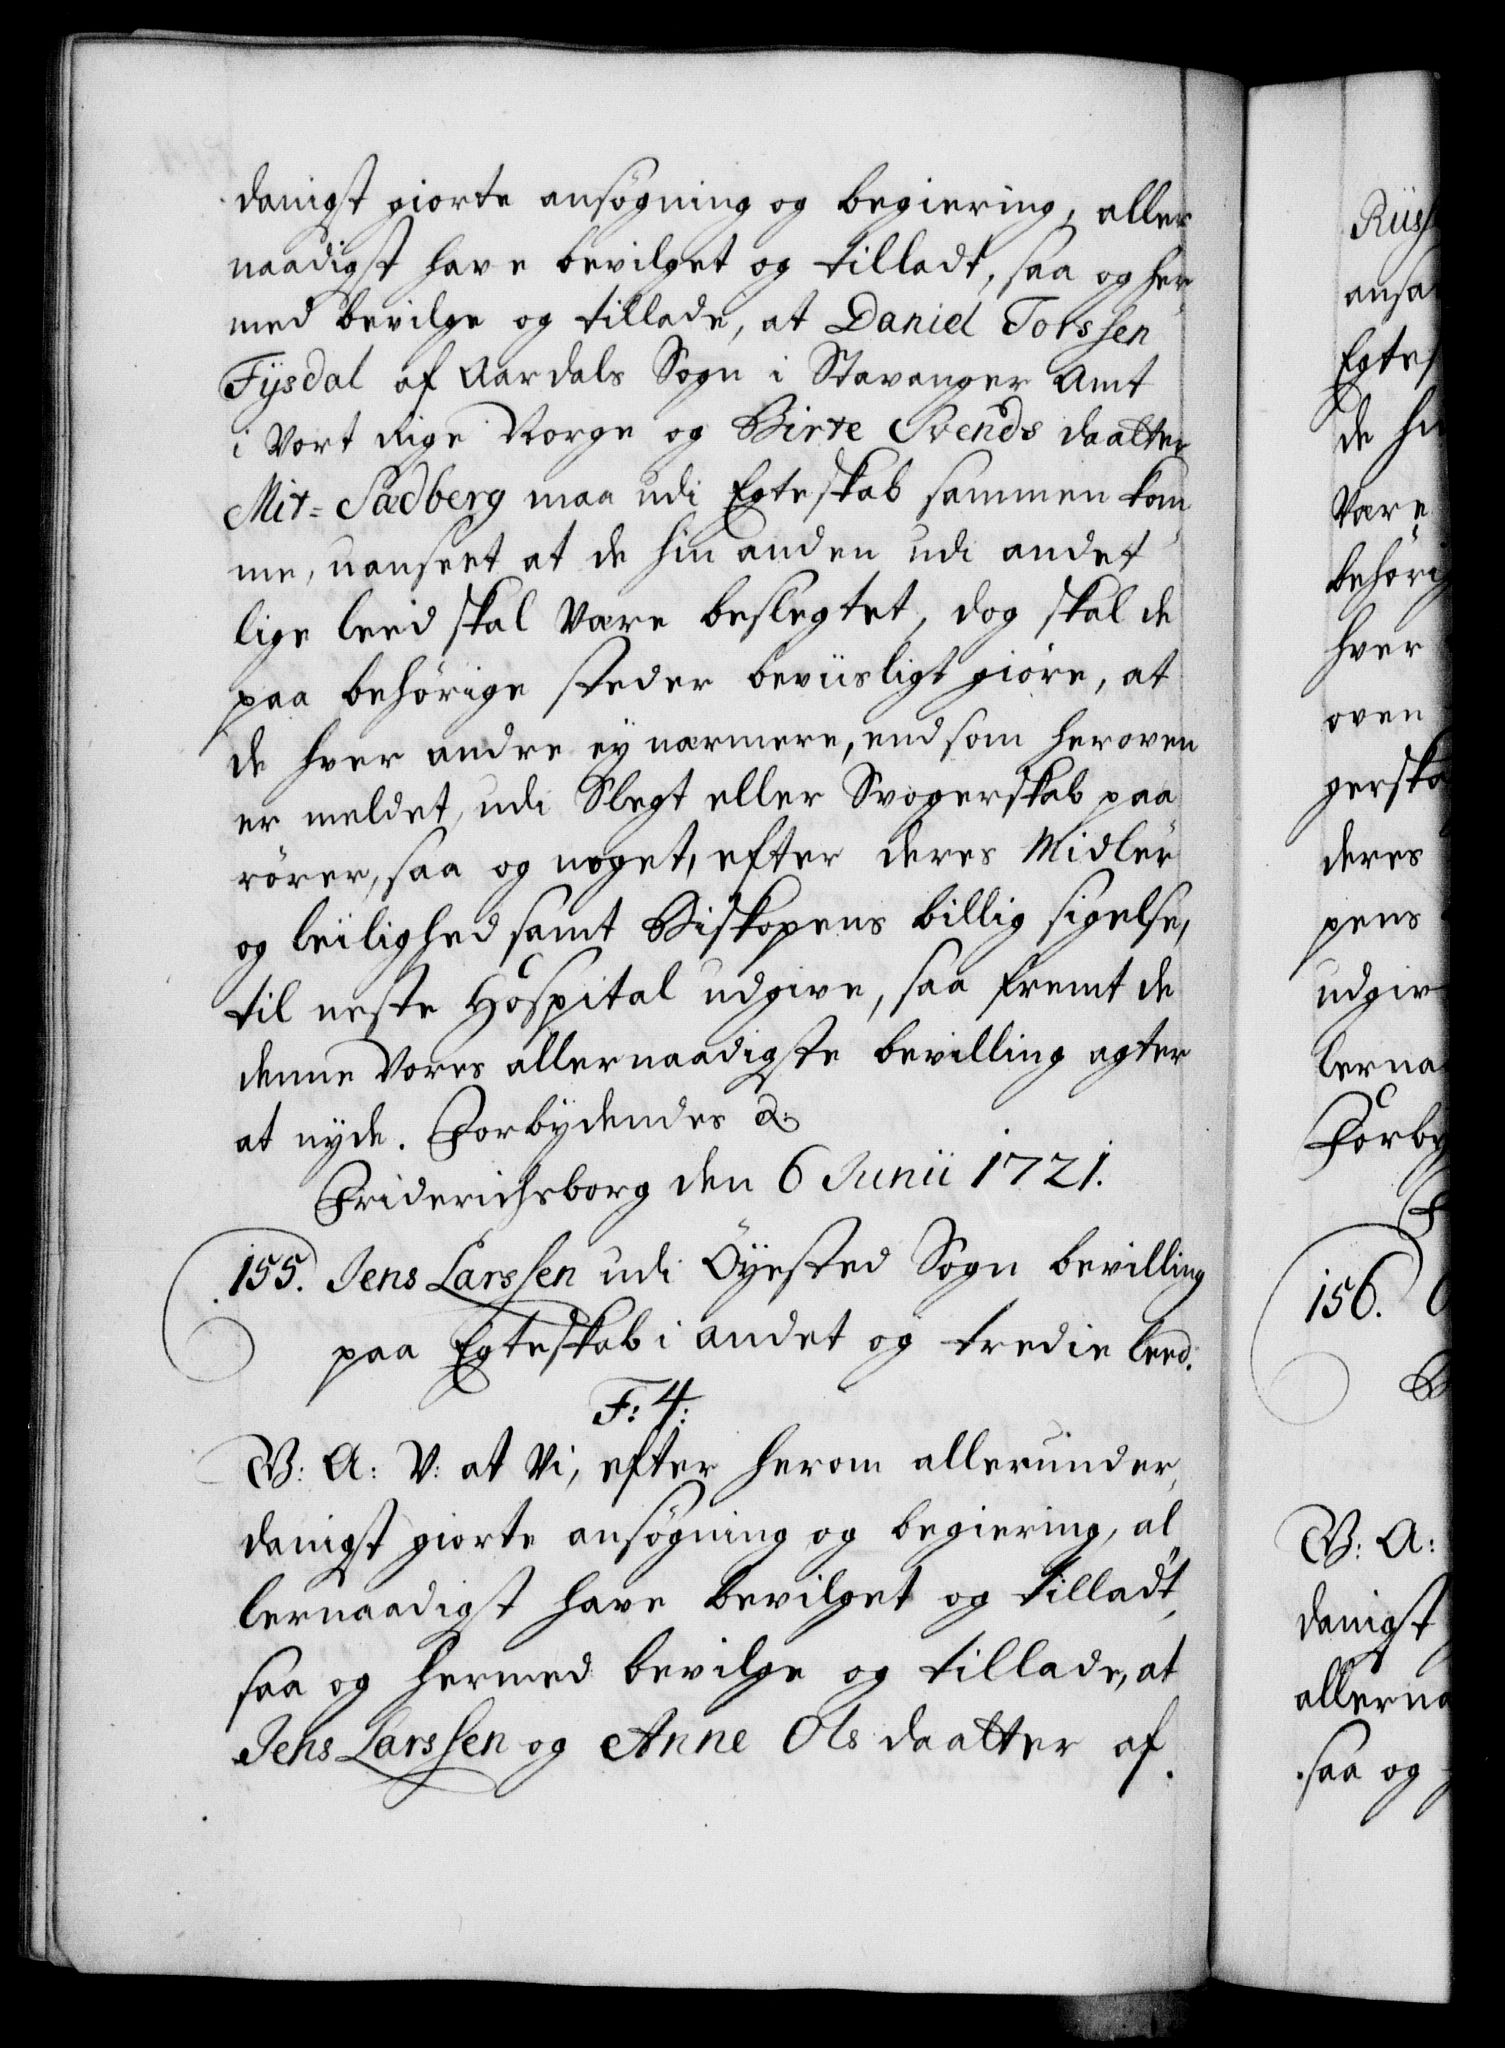 danigst giorte ansøgning og begiering, aller
naadigst have bevilget og tilladt, saa og her,
med bevilge og tillade, at Daniel Torssen
Fijsdal af Aardals Sogn i Stavanger Amt
i Vort Rige Norge og Birte Svends daatter
Mit=Sadberg maa udi Egteskab sammen kom
me, uanseet at de hin anden udi andet
lige leed skal være beslegtet, dog skal de
paa behörige steder beviisligt giöre, at
de hver andre ey nærmere, end som heroven
er meldet, udi Slegt eller Svogerskab paa
rörer, saa og noget, efter deres Midler
og leilighed samt Biskopens billig sigelse,
til neste Hospital udgive, saa fremt de
denne Vores allernaadigste bevilling agter
at nyde. Forbydendes &
Friderichsborg den 6 Junii 1721.
155. Jens Larssen udi Öyested Sogn bevilling
paa Egteskab i andet og tredie leed.
F: 4:
V: A: V: at Vi, efter herom allerunder,
danigst giorte ansögning og begiering, al
lernaadigst have bevilget og tilladt,
saa og hermed bevilge og tillade, at
Jens Larssen og Anne Ols daatter af
ansa
Egtes
de hi
være
behörig
hver
oven
gerska
deres
pens
udgiv
lerna
Forby
156.
V: A:
danigst
allerna
saa og